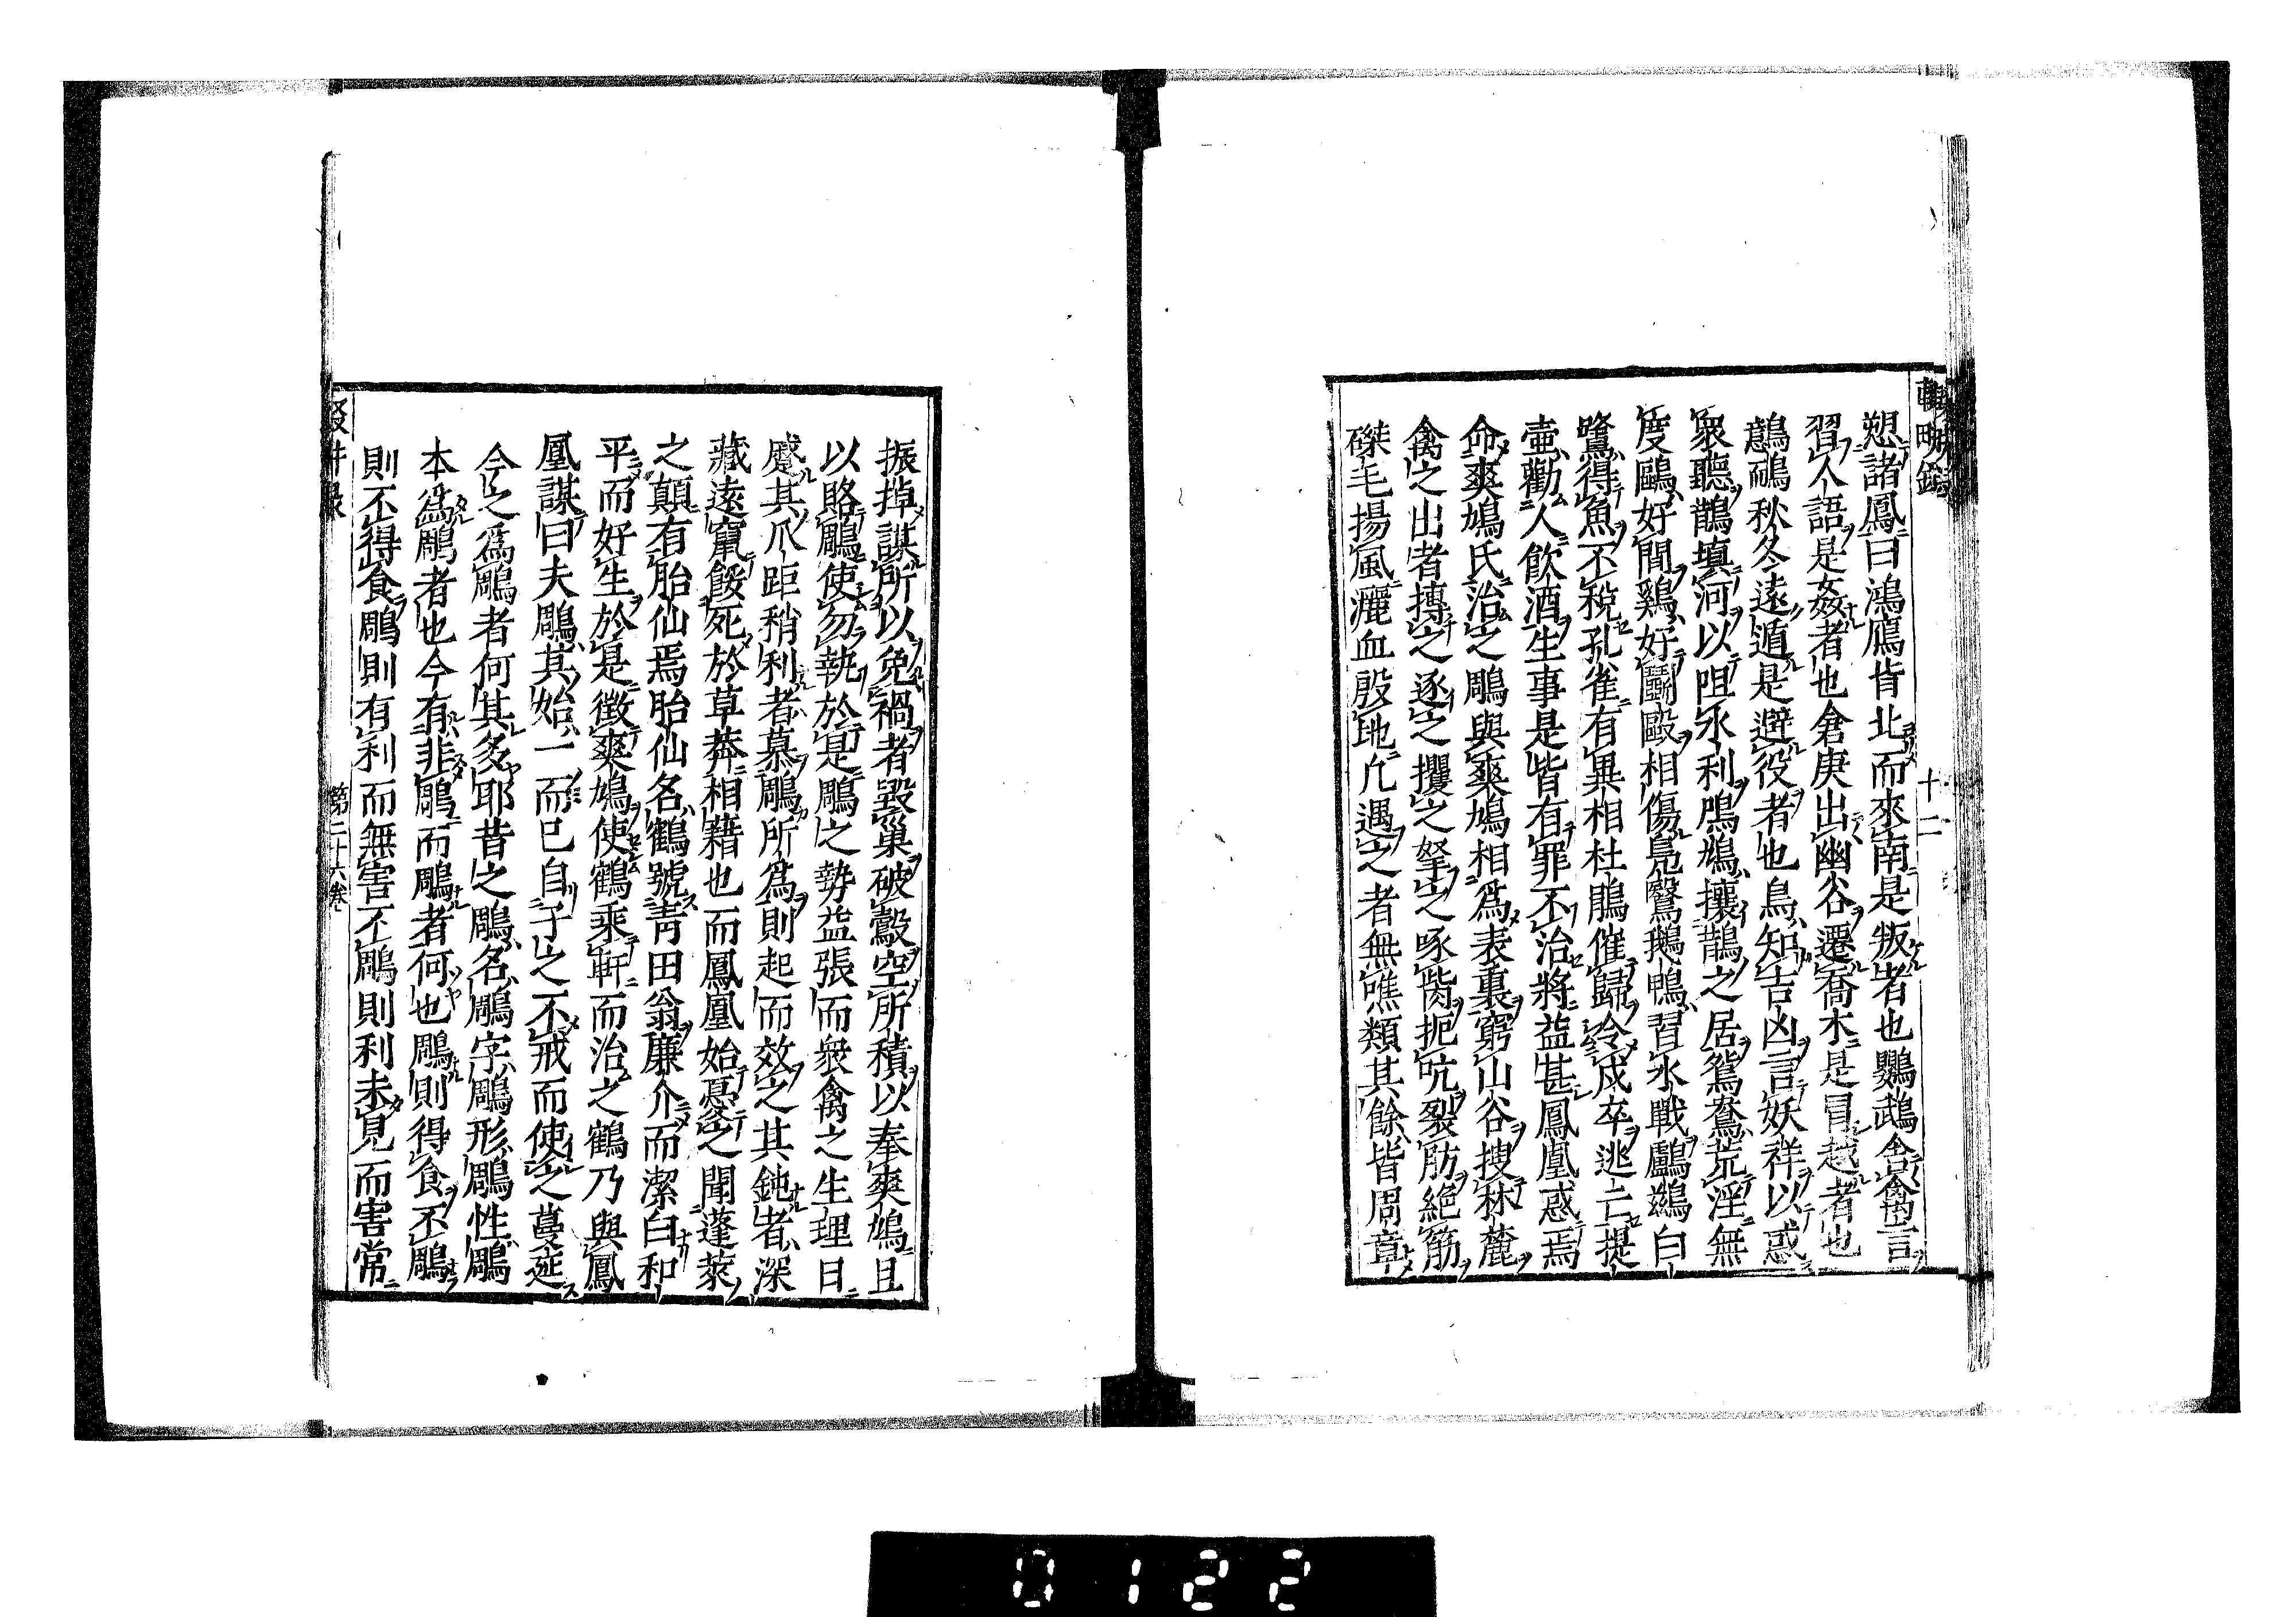 輟畊錄
十二
愬諸鳳曰鴻鴈背北而來南是叛者也鸚鵡舍禽言
習人語是姦者也倉庚出幽谷遷喬木是冒越者也
鷾鴯秋冬遠遁是避役者也鳥知吉凶言妖祥以惑
衆聽鵲塡河以咀水利鳲鳩攘鵲之居鴛鴦荒淫無
度鷗好閒鷄好鬬毆相傷鳧鷖鵝鴨習水戰鸕鷀白
鷺得魚不稅孔雀有異相杜鵑催歸令戍卒逃亡提
壺勸人飮酒生事是皆有罪不治將益甚鳳凰惑焉
命爽鳩氏治之鵰與爽鳩相爲表裏窮山谷搜林麓
禽之出者搏之逐之攫之拏之啄脔扼吭裂肪絕筋
磔毛揚風灑血殷地凢遇之者無噍類其餘皆周章
振掉謀所以免禍者毀巢破鷇空所積以奉爽鳩且
以賂鵰使勿執於是鵰之勢益張而衆禽之生理日
蹙其爪距稍利者慕鵰所爲則起而效之其鈍者深
藏遠竄餒死於草莽相藉也而鳳凰始憂之聞蓬萊
之顛有胎仙焉胎仙名鶴號靑田翁廉介而潔白和
平而好生於是徵爽鳩使鶴乘軒而治之鶴乃與鳳
凰謀曰夫鵰其始一而已自子之不戒而使之蔓延
今之爲鵰者何其多耶昔之鵰名鵰字鵰形鵰性鵰
本爲鵰者也今有非鵰而鵰者何也鵰則得食不鵰
則不得食鵰則有利而無害不鵰則利未見而害常
第二十六卷